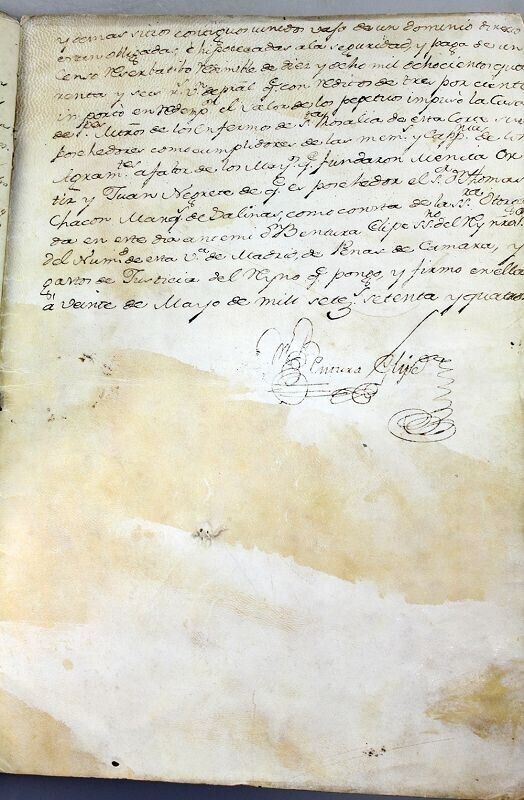 y demas sitios contiguos unidos vajo de un dominio directo
estan obligadas, e hipotecadas a la seguridad, y paga de un
Censo reserbatibo redimible de diez y ocho mil ochocientos qua
renta y seis rs. Vn. de pral. con reditos de tres por ciento
en redemp.on el valor de los perpetuos impuso la Casa
de los Enfermos de Sta. Rosalia de esta Corte
posehedores como cumplidores de las mem.s y Capp.nias de
a fabor de los que fundaron Mencia Or
tiz y Juan Negrete de q.e es posehedor el Sr. Dn. Thomas
Chacon Marq.s de Salinas, como consta de las
da en este dia ante mi Dn. Bentura Elipe SSno. del Rey nro.
del Num.o de esta V.a de Madrid, de Penas de Camara, y
gastos de Justicia del Reyno q.e pongo, y firmo en ella
a veinte de Mayo de mill setez.s setenta y quatro
Bentura Elipe